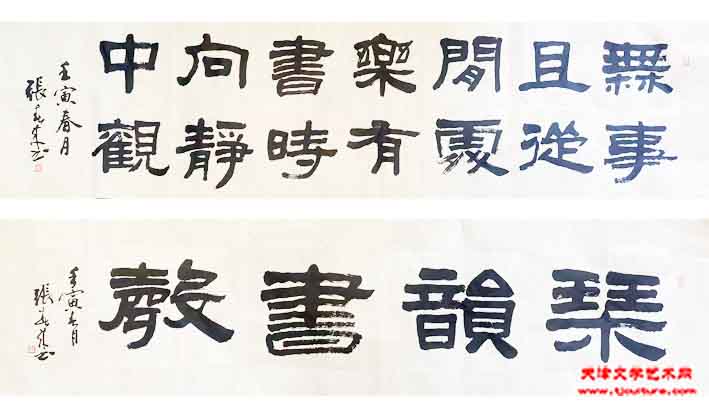 無事
且從
閒處
樂有
書時
向靜
中觀
壬寅春月
張
琹韻書聲
壬寅春月
張
天津文学艺术网
www.tjculture.com